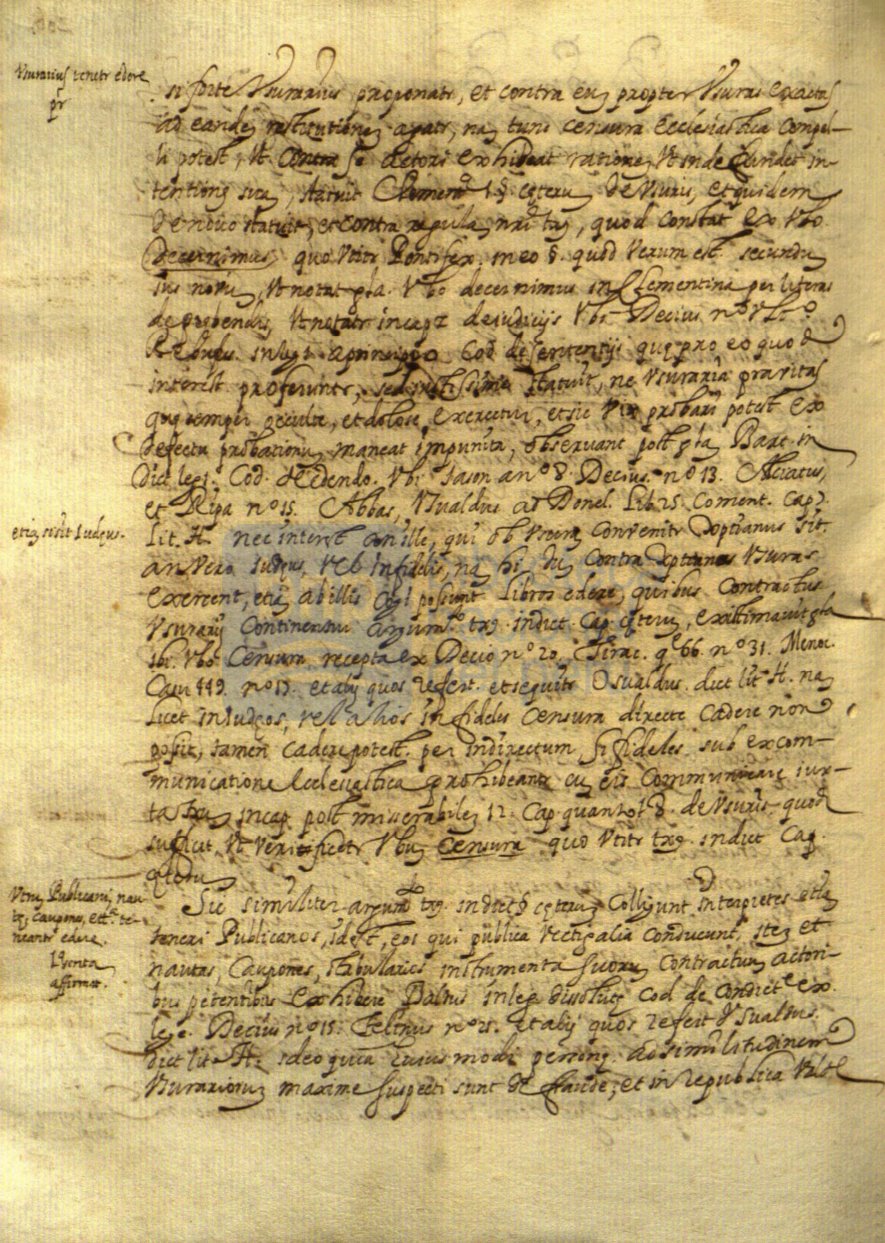 Usurarius tenetr edere
pr
si forte Usurarius proponatr, et contra eu propter Usuras exactas
ad eande restitutione agatr, na tunc censura Ecclesiastica Compel-
li potest, Vt Contra se Actori exhibeat ratione, Vt inde fundet in-
tentione sua, statuit Clement. 1 § ceteru de Usuris, et quidem
de novo statuit, et contra regula, quod constat ex Vbo
Decernimus, quo Vtitr Pontifex in eo §. quod Verum est secundu
ius novu, Vt notat gla. Vbo decernimus in Clementina per literas
de prebendis, Vt notatr in cap 2 de iudicijs Vbi Decius nº
in leg 1 a principio Cod de sententijs que pro eo quod
interest proferuntr, sed iustissime statuit, ne Usuraria pravitas
que semper occulte, et dolose exercetur, et sic Vix probari potest ex
defectu probationu maneat impunita, observant post gla Bart. in
dict leg 1. Cod. de Edendo. Vbi Jason a nº 8. Decius. nº 13. Alciatus,
et Ripa nº 15. Abbas, Usualdus ad Donel. Lib 25 Coment. Cap 2.
etia si sit Iudeus.
Lit. H. nec interest an ille, qui ob Usura Convenitr Xptianus sit
an Vero Iudeus, Vel Infidelis, na hi du Contra Xptianos Usuras
exercent, etia ab illis cogi possunt Libros edere, quibus Contractus
Usurarij Continentur argum.to txº. in dict. Cap. ceteru, existimavit gla
ibi. Vbo Censura recepta ex Decio nº 20, Tirac. q 66. nº 31. Menoc.
Casu 449. nº 17. et alij quos refert. et sequitr Osualdus. dict lit H. na
Licet in Iudeos, vel alios infideles Censura directe Cadere non
possit, tamen Cadere potest. per indirectum si fideles sub excom-
municatione Ecclesiastica prohibeantr cu eis Communicare iux-
ta in cap post misserabile 12. Cap quanto 18. de Usuris quod
sufficit, Vt Verificetr Vbu Censura quo Vtitr txº. in dict Cap.
ceteru
Utru Publicani, nau
te, caupones, etc. te-
neantr edere.
affirmat.
Sic similiter argum.to txº. in dict § ceteru Colligunt Interpretes etia
teneri Publicanos, id est, eos qui publica Vectigalia Conducunt, ite et
nautas, Caupones, stabularios instrumenta suoru Contractuu actori-
bus petentibus exhibere Baldus in leg. dissolute Cod de Condict.e ex
lege. Decius nº 15. Felinus nº 21. et alij quos refert Usualdus.
dict lit. H. ideo quia huius modi persone Ad similitudinem
Usurarioru maxime suspecti sunt de fraude, et in republica